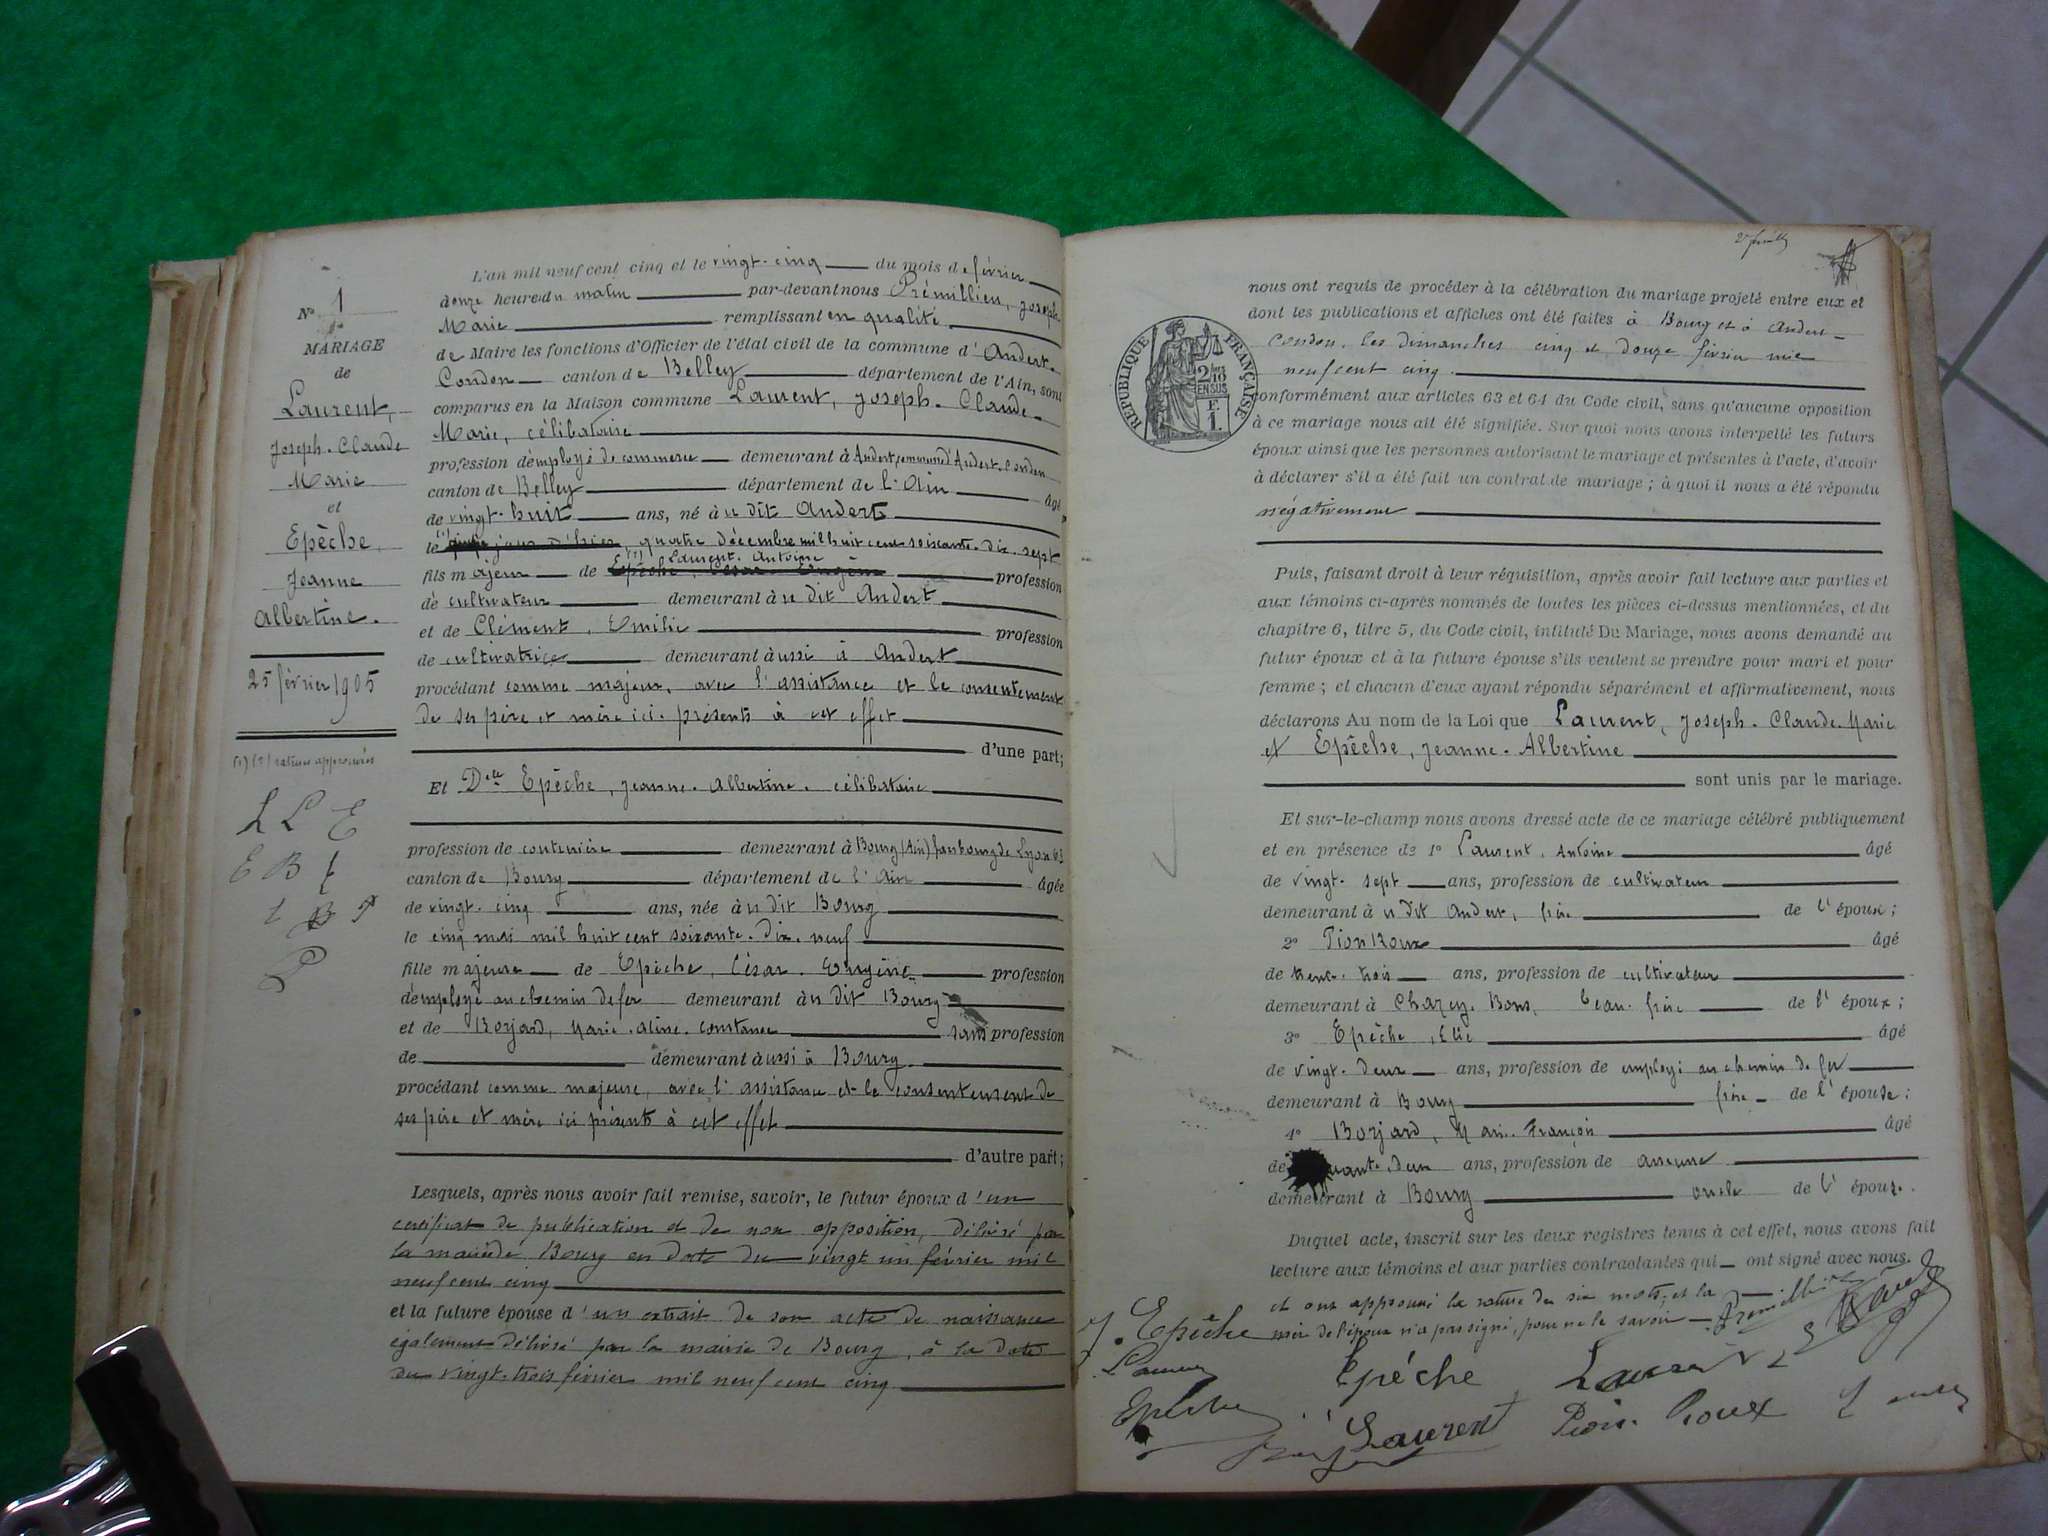 N° 1
MARIAGE
de
Laurent,
Joseph-Claude
Marie
et
Epèche,
Jeanne
Albertine.
25 février 1905
(1) (2) ratures approuvées
L L E
E B
L'an mil neuf cent cinq et le vingt-cinq du mois de février
douze heure du matin par-devant nous Prémillieu, Joseph
Marie remplissant en qualité
de Maire les fonctions d'Officier de l'état civil de la commune d'Andert-
Condon canton de Belley département de l'Ain, sont
comparus en la Maison commune Laurent, Joseph-Claude-
Marie, célibataire
profession d'employé de commerce demeurant à Andert, commune d'Andert-Condon
canton de Belley département de l'Ain âgé
de vingt-huit ans, né à u dit Andert
le jour d'hier quatre décembre mil huit cent soixante-dix-sept
(2) Laurent, Antoine
fils majeur de Epèche, César Eugène profession
de cultivateur demeurant à u dit Andert
et de Clément, Emilie profession
de cultivatrice demeurant à ussi à Andert
procédant comme majeur, avec l'assistance et le consentement
de ses père et mère ici présents à cet effet
d'une part;
Et Delle Epèche, Jeanne-Albertine, célibataire
profession de couturière demeurant à Bourg (Ain) faubourg de Lyon 63
canton de Bourg département de l'Ain âgée
de vingt-cinq ans, née à u dit Bourg
le cinq mai mil huit cent soixante-dix-neuf
fille majeure de Epèche, César-Eugène profession
d'employé au chemin de fer demeurant à u dit Bourg
et de Borjard, Marie-Aline-Constance sans profession
de demeurant à ussi à Bourg
procédant comme majeure, avec l'assistance et le consentement de
ses père et mère ici présents à cet effet
d'autre part;
Lesquels, après nous avoir fait remise, savoir, le futur époux d'un
certificat de publication et de non opposition, délivré par
la mairie de Bourg en date du vingt un février mil
neuf cent cinq
et la future épouse d'un extrait de son acte de naissance
également délivré par la mairie de Bourg, à la date
du vingt-trois février mil neuf cent cinq
RÉPUBLIQUE FRANÇAISE
2/10 EN SUS
F.
1.
nous ont requis de procéder à la célébration du mariage projeté entre eux et
dont les publications et affiches ont été faites à Bourg et à Andert-
Condon, les dimanches cinq et douze février mil
neuf cent cinq.
conformément aux articles 63 et 64 du Code civil, sans qu'aucune opposition
à ce mariage nous ait été signifiée. Sur quoi nous avons interpellé les futurs
époux ainsi que les personnes autorisant le mariage et présentes à l'acte, d'avoir
à déclarer s'il a été fait un contrat de mariage; à quoi il nous a été répondu
négativement
Puis, faisant droit à leur réquisition, après avoir fait lecture aux parties et
aux témoins ci-après nommés de toutes les pièces ci-dessus mentionnées, et du
chapitre 6, titre 5, du Code civil, intitulé Du Mariage, nous avons demandé au
futur époux et à la future épouse s'ils veulent se prendre pour mari et pour
femme; et chacun d'eux ayant répondu séparément et affirmativement, nous
déclarons Au nom de la Loi que Laurent, Joseph-Claude-Marie
et Epèche, Jeanne-Albertine
sont unis par le mariage.
Et sur-le-champ nous avons dressé acte de ce mariage célébré publiquement
et en présence de 1° Laurent, Antoine âgé
de vingt-sept ans, profession de cultivateur
demeurant à u dit Andert, frère de l'époux;
2° Pion Roux âgé
de trente-trois ans, profession de cultivateur
demeurant à Chazey-Bons, beau-frère de l'époux;
3° Epèche, Elie âgé
de vingt-deux ans, profession de employé au chemin de fer
demeurant à Bourg frère de l'épouse;
4° Borjard, Marie François âgé
de ans, profession de
demeurant à Bourg oncle de l'épouse.
Duquel acte, inscrit sur les deux registres tenus à cet effet, nous avons fait
lecture aux témoins et aux parties contractantes qui ont signé avec nous.
et ont approuvé la rature de six mots; et la
mère de l'époux n'a pas signé, pour ne le savoir
J. Epèche
Prémillieu
Laurent
Epéche
Laurent
Epèche
Laurent
Pion Roux